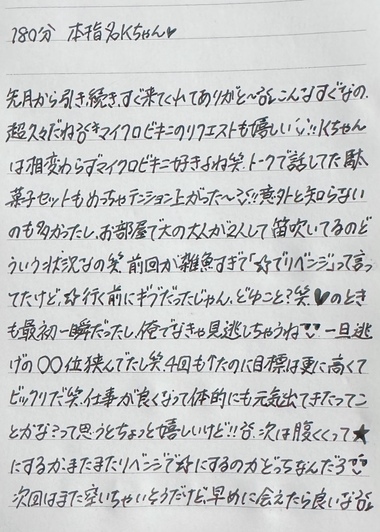 180分 本指名Kちゃん♥
先月から引き続き、すぐ来てくれてありがと〜!こんなすぐなの、
超久々だねマイクロビキニのリクエストも嬉しい!!Kちゃん
は相変わらずマイクロビキニ好きよね笑、トークで話してた駄
菓子セットもめっちゃテンション上がった〜!!意外と知らない
のも多かったし、お部屋で大の大人が2人して笛吹いてるのど
ういう状況なの笑 前回が雑魚すぎて「☆でリベンジ」って言っ
てたけど、☆行く前にギブだったじゃん、どゆこと?笑♥のとき
も最初一瞬だったし、俺でなきゃ見逃しちゃうね 一旦逃
げの〇〇位挟んでたし笑4回もたのに目標は更に高くて
ビックリだ笑、仕事が良くなって体的にも元気出てきたってこ
とかな?って思うとちょっと嬉しいけど!!次は腹くくって★
にするか、またまたリベンジで☆にするのかどっちなんだろ
次回はまた空いちゃいそうだけど、早めに会えたら良いな